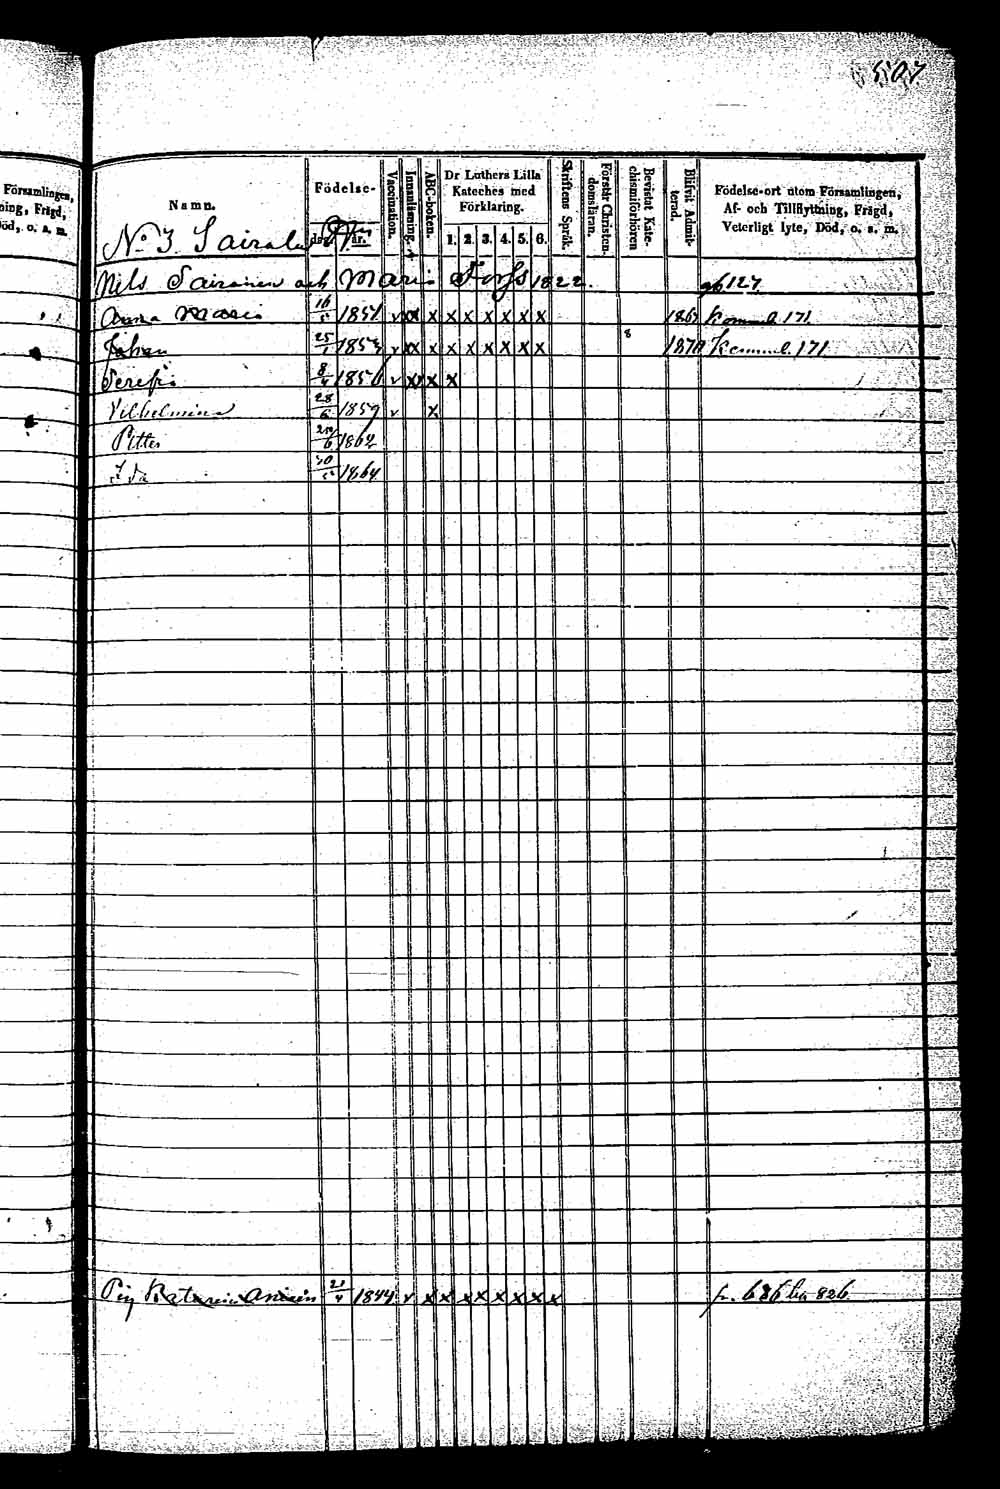 507
Församlingen,
ning, Frägd,
öd, o. s. m.
Namn.
Födelse-
dag.
år.
Vaccination.
Innanläsning.
ABC-boken.
Dr Luthers Lilla
Kateches med
Förklaring.
1. 2. 3. 4. 5. 6.
Skriftens Språk.
Förstår Christen-
domsläran.
Bevistat Kate-
chismiförhören
Blifvit Admit-
terad.
Födelse-ort utom Församlingen,
Af- och Tillflyttning, Frägd,
Veterligt lyte, Död, o. s. m.
No 3. Sairala
Nils Sairanen och Maria Forss 1822. 127
Anna Maria 16/5 1851 v x x x x x x x x x 171.
Johan 25/1 1853 v x x x x x x x x x 8 1870 171
Serefia 8/4 1856 v x x x x
Vilhelmina 28/6 1859 v x
Petter 6 1862
Ida 30 1864
Pig Katarina 21/4 1844 v x x x x x x x x fr. 686 826